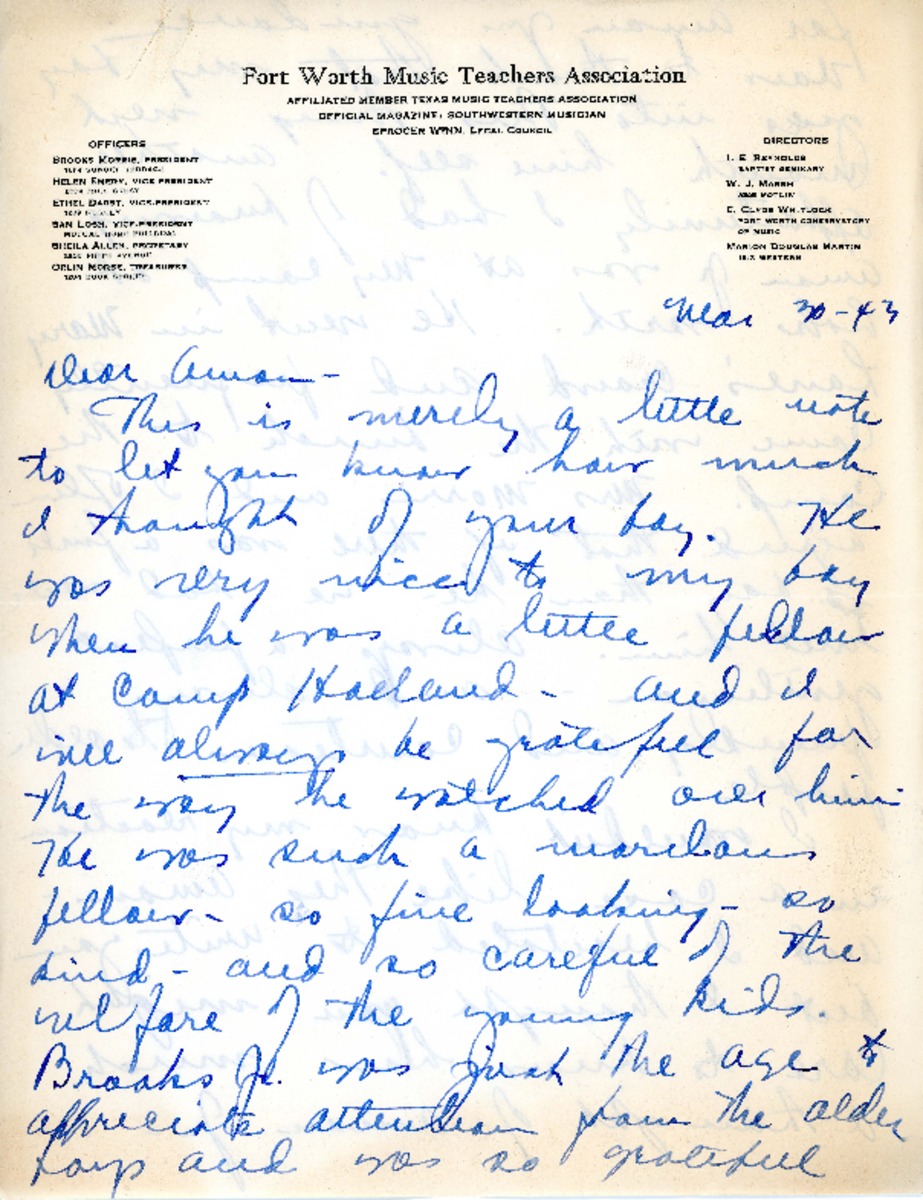 Fort Worth Music Teachers Association
AFFILIATED MEMBER TEXAS MUSIC TEACHERS ASSOCIATION
OFFICIAL MAGAZINE: SOUTHWESTERN MUSICIAN
SPROCER WYNN, LEGAL COUNCIL
OFFICERS
BROOKS MORRIS, PRESIDENT
HELEN EMERY, VICE PRESIDENT
ETHEL DARST, VICE-PRESIDENT
SAN LOSH, VICE-PRESIDENT
SHEILA ALLEN, SECRETARY
ORLIN MORSE, TREASURER
DIRECTORS
I. E. REYNOLDS
BAPTIST SEMINARY
W. J. MARSH
E. CLYDE WHITLOCK
FORT WORTH CONSERVATORY
OF MUSIC
MARION DOUGLAS MARTIN
WESTERN
Mar 30-43
Dear Amon-
This is merely a little note
to let you know how much
I thought of your boy. He
was very nice to my boy
when he was a little fellow
at Camp Holland - and I
will always be grateful for
the way he watched over him
He was such a marvelous
fellow - so fine looking - so
kind - and so careful of the
welfare of the young kids.
Brooks Jr. was just the age to
appreciate attention from the older
boys and was so grateful